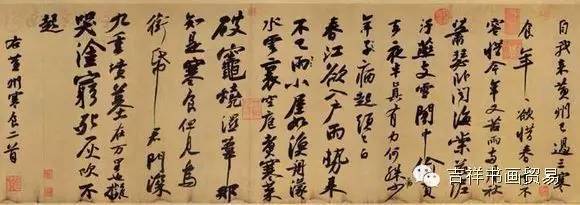 自我来黄州已過三寒
食年々欲惜春春去不
容惜今年又苦雨兩月秋
蕭瑟卧聞海棠花泥
汙燕支雪闇中偷負
去夜半真有力何殊少
年子病起頭已白
春江欲入户雨勢来
不已雨小屋如漁舟濛々
水雲裏空庖煮寒菜
破竈燒濕葦那
知是寒食但見烏
銜帋君門深
九重墳墓在万里也擬
哭塗窮死灰吹不
起
右黄州寒食二首
吉祥书画贸易